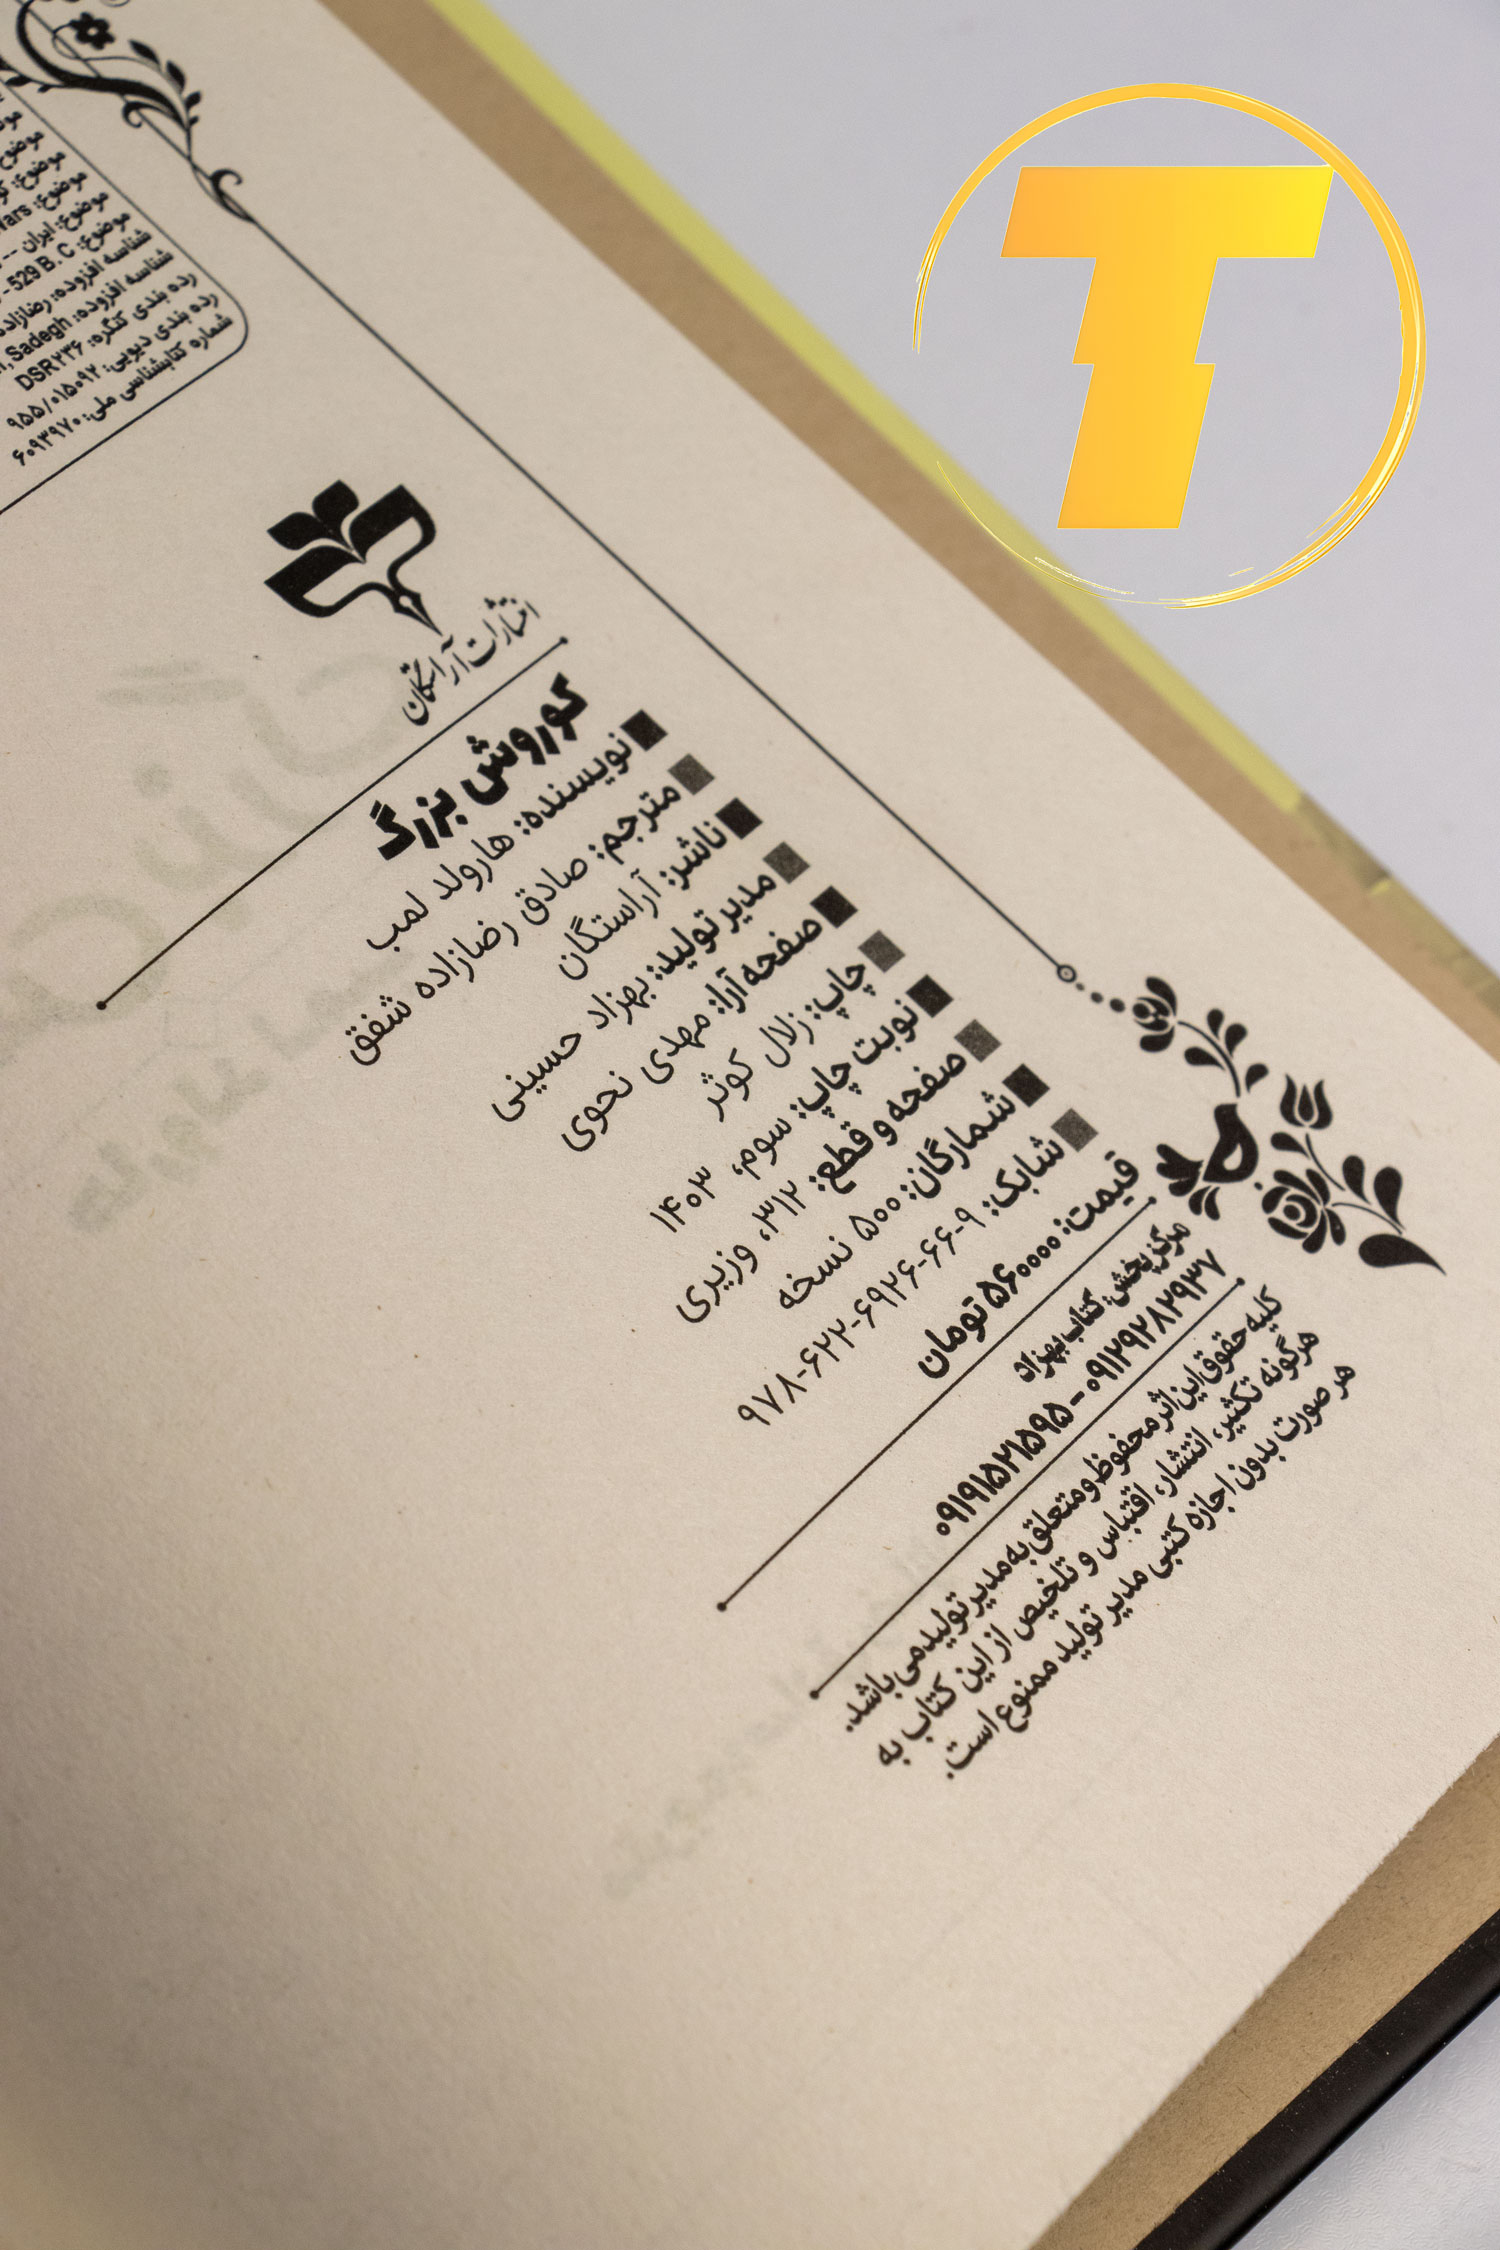 موضوع
موضوع:
موضوع:
موضوع: Wars
موضوع: ایران --
موضوع: - 529 B. C
شناسه افزوده: رضازاده
شناسه افزوده: Sadegh
رده بندی کنگره: DSR۲۳۶
رده بندی دیویی: ۹۵۵/۰۱۵۰۹۲
شماره کتابشناسی ملی: ۶۰۹۳۹۷۰
انتشارات آراستگان
کوروش بزرگ
نویسنده: هارولد لمب
مترجم: صادق رضازاده شفق
ناشر: آراستگان
مدیر تولید: بهزاد حسینی
صفحه آرا: مهدی نحوی
چاپ: زلال کوثر
نوبت چاپ: سوم، ۱۴۰۳
صفحه و قطع: ۳۱۲، وزیری
شمارگان: ۵۰۰ نسخه
شابک: ۹-۶۶-۶۹۲۶-۶۲۲-۹۷۸
قیمت: ۵۶۰۰۰۰ تومان
مرکز پخش: کتاب بهزاد
۰۹۱۹۱۵۲۱۵۹۵ - ۰۹۱۲۹۲۸۲۹۳۷
کلیه حقوق این اثر محفوظ و متعلق به مدیر تولید می باشد.
هرگونه تکثیر، انتشار، اقتباس و تلخیص از این کتاب به
هر صورت بدون اجازه کتبی مدیر تولید ممنوع است.
T